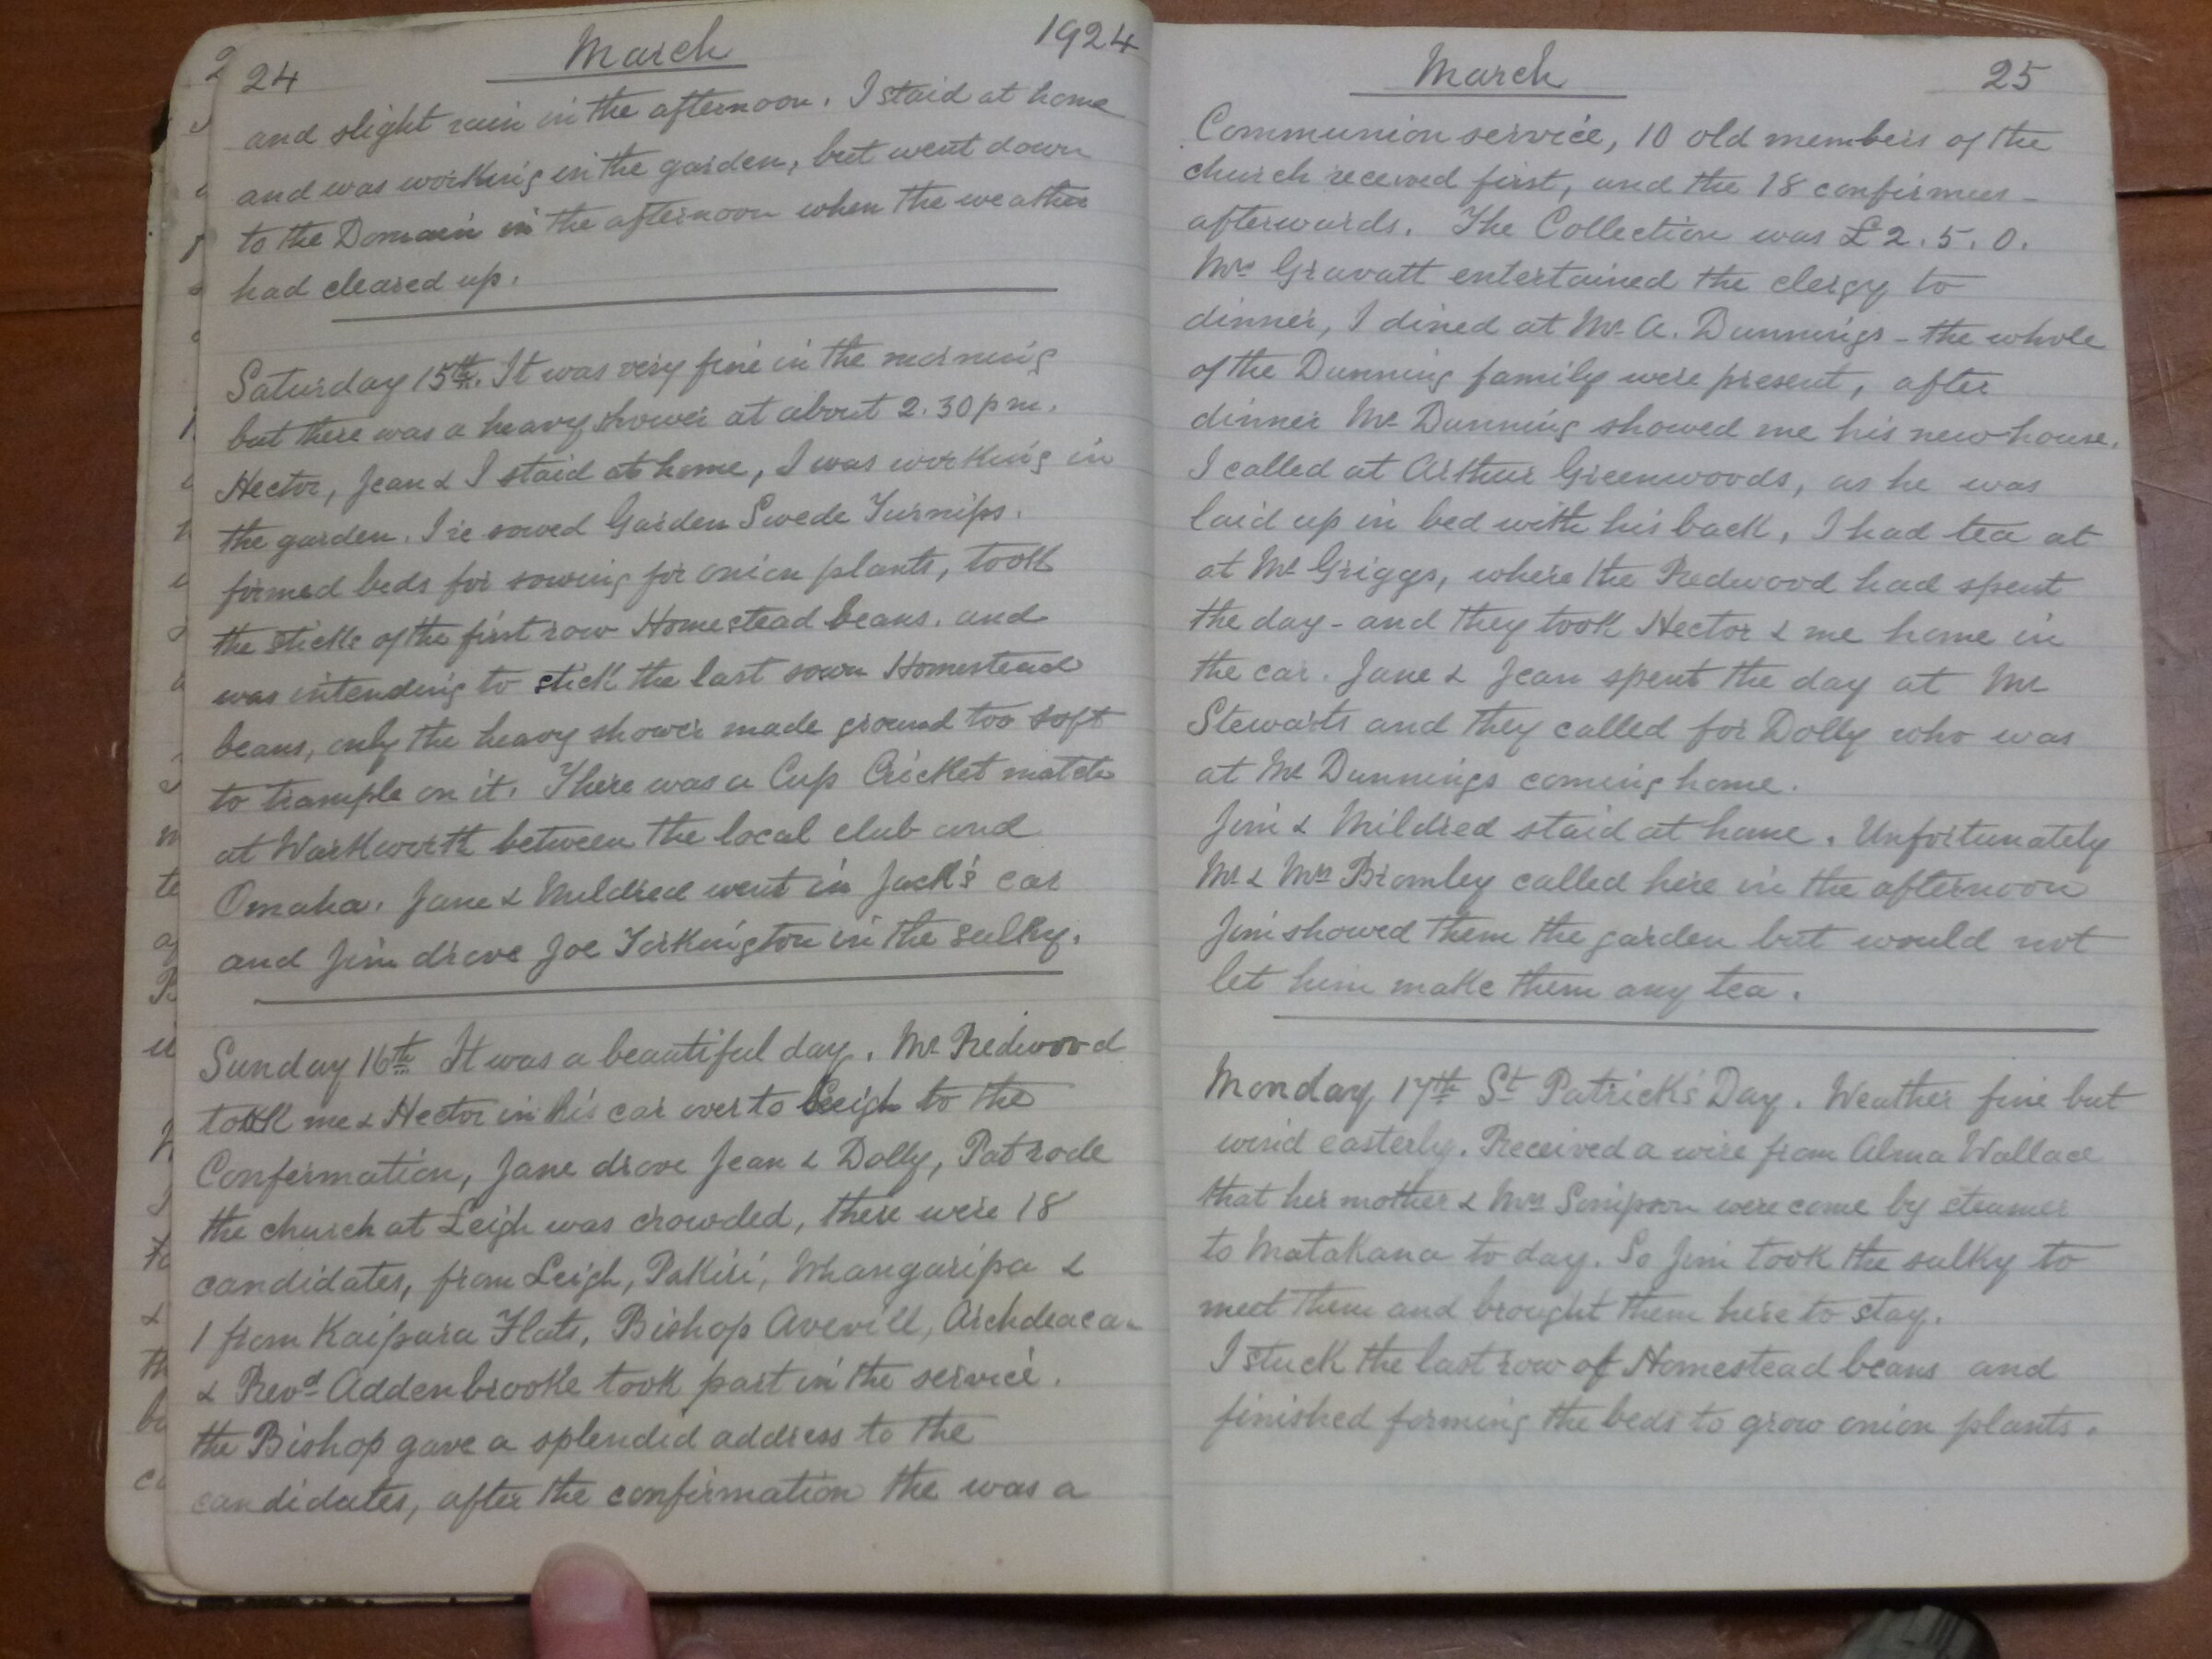 24 March 1924
and slight rain in the afternoon. I staid at home
and was working in the garden, but went down
to the Domain in the afternoon when the weather
had cleared up.
Saturday 15th. It was very fine in the morning
but there was a heavy shower at about 2.30 pm.
Hector, Jean & I staid at home, I was working in
the garden. I re sowed Garden Swede Turnips.
formed beds for sowing for onion plants, took
the sticks of the first row Homestead beans. and
was intending to stick the last sown Homestead
beans, only the heavy shower made ground too soft
to trample on it. There was a Cup Cricket match
at Warkworth between the local club and
Omaha. Jane & Mildred went in Jack's car
and Jim drove Joe Torkington in the sulky.
Sunday 16th It was a beautiful day. Mr Redwood
took me & Hector in his car over to Leigh to the
Confermation, Jane drove Jean & Dolly, Pat rode
the church at Leigh was crowded, there were 18
candidates, from Leigh, Pakiri, Whangaripa &
1 from Kaipara Flats, Bishop Averill, Archdeacon
& Revd Addenbrooke took part in the service.
the Bishop gave a splendid address to the
candidates, after the confirmation the was a
March 25
Communion service, 10 old members of the
church received first, and the 18 confirmees -
afterwards. The Collection was £2.5.0.
Mrs Gravatt entertained the clergy to
dinner, I dined at Mr A. Dunnings - the whole
of the Dunning family were present, after
dinner Mr Dunning showed me his new house.
I called at Arthur Greenwoods, as he was
laid up in bed with his back, I had tea at
at Mr Griggs, where the Redwood had spent
the day - and they took Hector & me home in
the car. Jane & Jean spent the day at Mr
Stewarts and they called for Dolly who was
at Mr Dunnings coming home.
Jim & Mildred staid at home. Unfortunately
Mr & Mrs Bromley called here in the afternoon
Jim showed them the garden but would not
let him make them any tea.
Monday 17th St Patrick's Day. Weather fine but
wind easterly. Received a wire from Alma Wallace
that her mother & Mrs Simpson were come by steamer
to Matakana to day. So Jim took the sulky to
meet them and brought them here to stay.
I stuck the last row of Homestead beans and
finished forming the beds to grow onion plants.